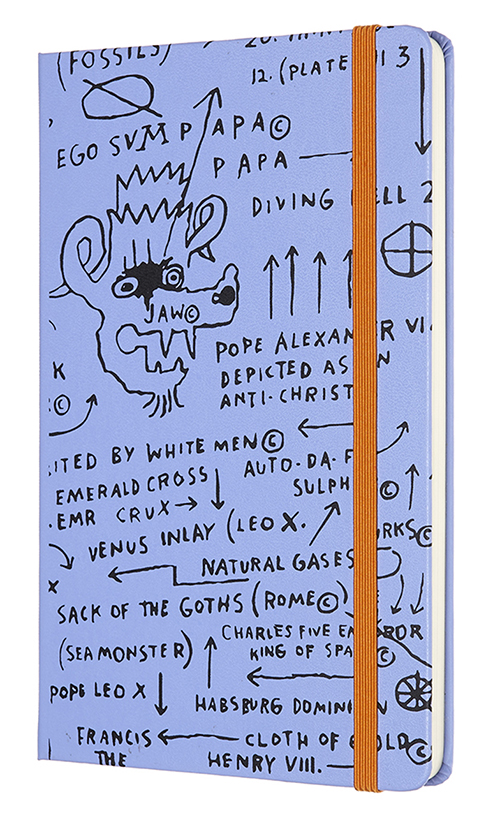 (FOSSILS)
12. (PLATE III 3
EGO SVM PAPA©
PAPA
DIVING BELL 2
JAW©
POPE ALEXANDER VI
DEPICTED AS AN
ANTI-CHRIST
K
©
ITED BY WHITE MEN©
AUTO-DA-F
EMERALD CROSS
SULPH ©
.EMR CRUX
VENUS INLAY (LEO X.
RKS©
NATURAL GASES
X
SACK OF THE GOTHS (ROME©)
CHARLES FIVE EMPEROR
(SEA MONSTER)
KING OF SPA ©
POPE LEO X
HABSBURG DOMINION
FRANCIS
CLOTH OF GOLD©
THE
HENRY VIII.